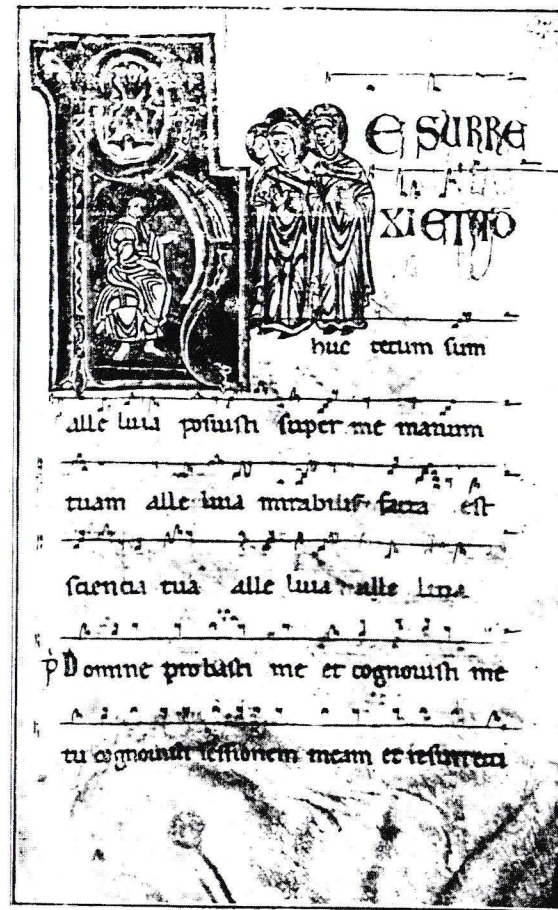 R ESURRE
XI ET ATO
huc tecum sum
alle luia posuisti super me manum
tuam alle luia mirabilis facta est
sciencia tua alle luia alle luia
Domine probasti me et cognouisti me
tu cognouisti sessionem meam et resurrecti